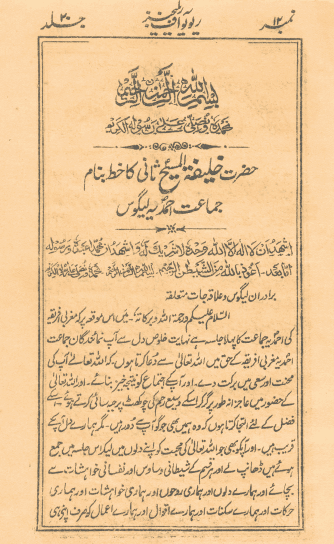 نمبر ۱۲ ریویو آف ریلیجنز جلد ۲۰
بسم اللہ الرحمن الرحیم
نحمدہ و نصلی علی رسولہ الکریم
حضرت خلیفۃ المسیح ثانی کا خط بنام
جماعت احمدیہ لیگوس
اشہد ان لا الہ الا اللہ وحدہ لا شریک لہ و اشہد ان محمدا عبدہ و رسولہ
اما بعد۔ اعوذ باللہ من الشیطن الرجیم
برادران لیگوس و علاقہ جات متعلقہ
السلام علیکم ورحمۃ اللہ وبرکاتہ۔ میں اس موقعہ پر کہ مغربی افریقہ
کی احمدیہ جماعت کا پہلا جلسہ ہے نہایت خلوص دل سے آپ نمائندگان جماعت
احمدیہ مغربی افریقہ کے حق میں اللہ تعالیٰ سے دعا کرتا ہوں کہ اللہ تعالیٰ آپ کی
محنت اور سعی میں برکت دے۔ اور آپکے اجتماع کو نتیجہ خیز بنائے۔ اور اللہ تعالیٰ
کے حضور میں عاجزانہ طور پر گر کر اسکے وسیع رحم کی چوکھٹ پر جبہ سائی کرتے ہوئے اسکے
فضل کے لئے التجا کرتا ہوں کہ وہ ہمیں بھی جو گو آپ سے دور ہیں۔ مگر ہمارے دل آپکے
قریب ہیں۔ اور آپکو بھی جو اللہ تعالیٰ کی محبت کو اپنے دلوں میں لیکر اس جلسہ میں جمع
ہوئے ہیں ڈھانپ لے۔ اور ہر قسم کے شیطانی وساوس اور نفسانی خواہشات سے
بچائے۔ اور ہمارے دلوں اور ہماری روحوں اور ہماری خواہشات اور ہماری
حرکات اور ہمارے سکنات اور ہمارے اقوال اور ہمارے اعمال کو صرف اپنی ہی